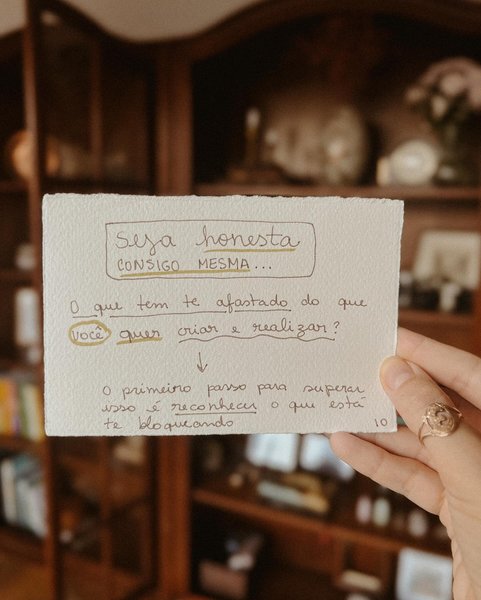 Seja honesta
CONSIGO MESMA...
O que tem te afastado do que
você quer criar e realizar?
O primeiro passo para superar
isso é reconhecer o que está
te bloqueando
10